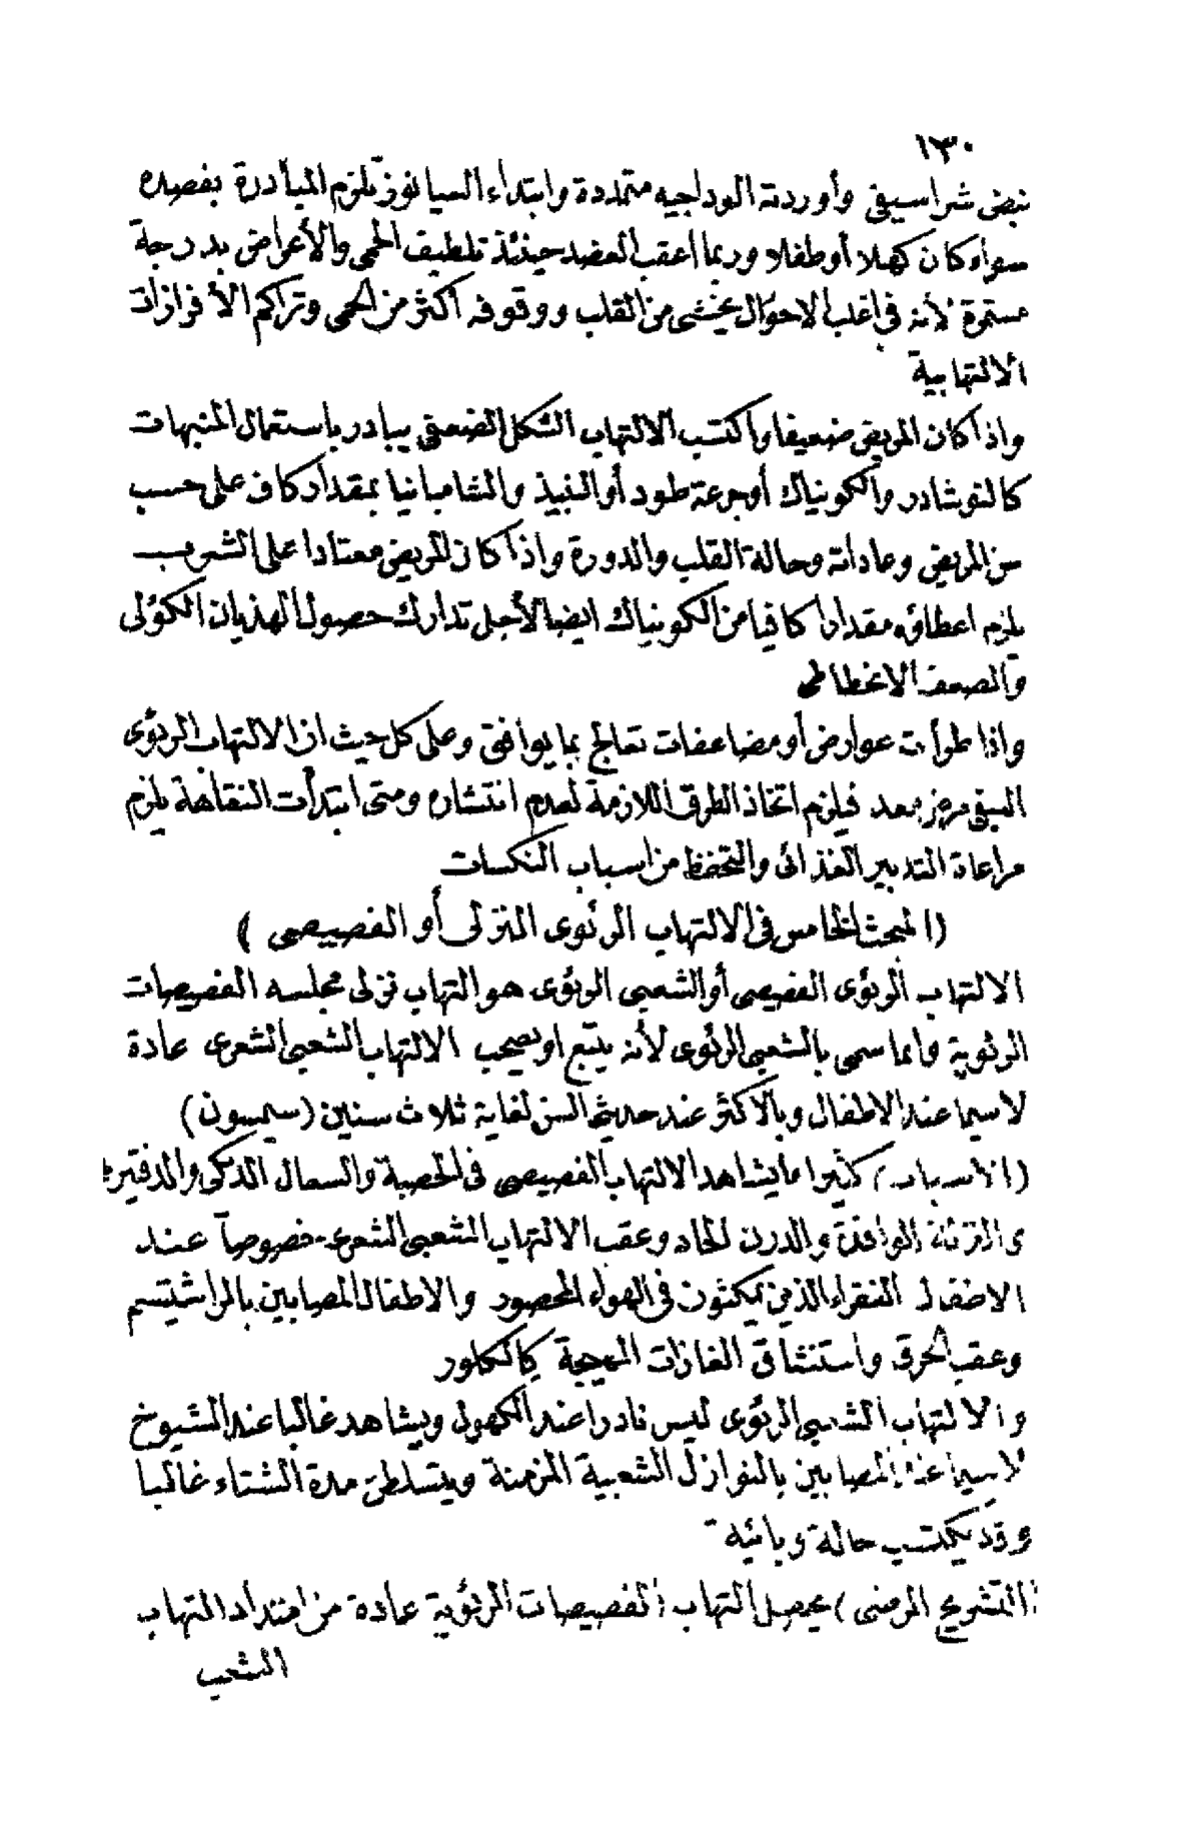 ١٣٠
نبض شراسيفى وأوردته الوداجيه متمددة وابتداء السيانوز تلزم المبادرة بفصده
سواء كان كهلا أو طفلا وربما اعقب الفصد حينئذ تلطيف الحمى والأعراض بدرجة
مستمرة لأنه فى اغلب الاحوال يخشى من القلب ووقوفه أكثر من الحمى وتراكم الأفرازات
الالتهابية
واذا كان المريض ضعيفا واكتسب الالتهاب الشكل الضعفى يبادر باستعمال المنبهات
كالنوشادر والكونياك أوجرعة طود أو النبيذ والشامبانيا بمقدار كاف على حسب
سن المريض وعاداته وحالة القلب والدورة واذا كان المريض معتادا على الشرب
يلزم اعطاؤه مقدارا كافيا من الكونياك ايضا لأجل تدارك حصول الهذيان الكؤلى
والضعف الانحطاطى
واذا طرأت عوارض أو مضاعفات تعالج بما يوافق وعلى كل حيث ان الالتهاب الرئوى
البنى مرض معد فيلزم اتخاذ الطرق اللازمة لعدم انتشاره ومتى ابتدأت النقاهة يلزم
مراعاة التدبير الغذائى والتحفظ من اسباب النكسات
(المبحث الخامس فى الالتهاب الرئوى النزلى أو الفصيصى)
الالتهاب الرئوى الفصيصى أو الشعبى الرئوى هو التهاب نزلى مجلسه الفصيصات
الرئوية وانما سمى بالشعبى الرئوى لأنه يتبع او يصحب الالتهاب الشعبى الشعرى عادة
لاسيما عند الاطفال وبالاكثر عند حديثى السن لغاية ثلاث سنين (سيمسون)
(الأسباب) كثيرا ما يشاهد الالتهاب الفصيصى فى الحصبة والسعال الديكى والدفتيريا
والنزلة الوافدة والدرن الحاد وعقب الالتهاب الشعبى الشعرى خصوصا عند
الاطفال الفقراء الذين يمكثون فى الهواء المحصور والاطفال المصابين بالراشيتسم
وعقب الحرق واستنشاق الغازات المهيجة كالكلور
والالتهاب الشعبى الرئوى ليس نادرا عند الكهول ويشاهد غالبا عند الشيوخ
لاسيما عند المصابين بالنوازل الشعبية المزمنة ويتسلطن مدة الشتاء غالبا
وقد يكتسب حالة وبائية
(التشريح المرضى) يحصل التهاب الفصيصات الرئوية عادة من امتداد التهاب
الشعب